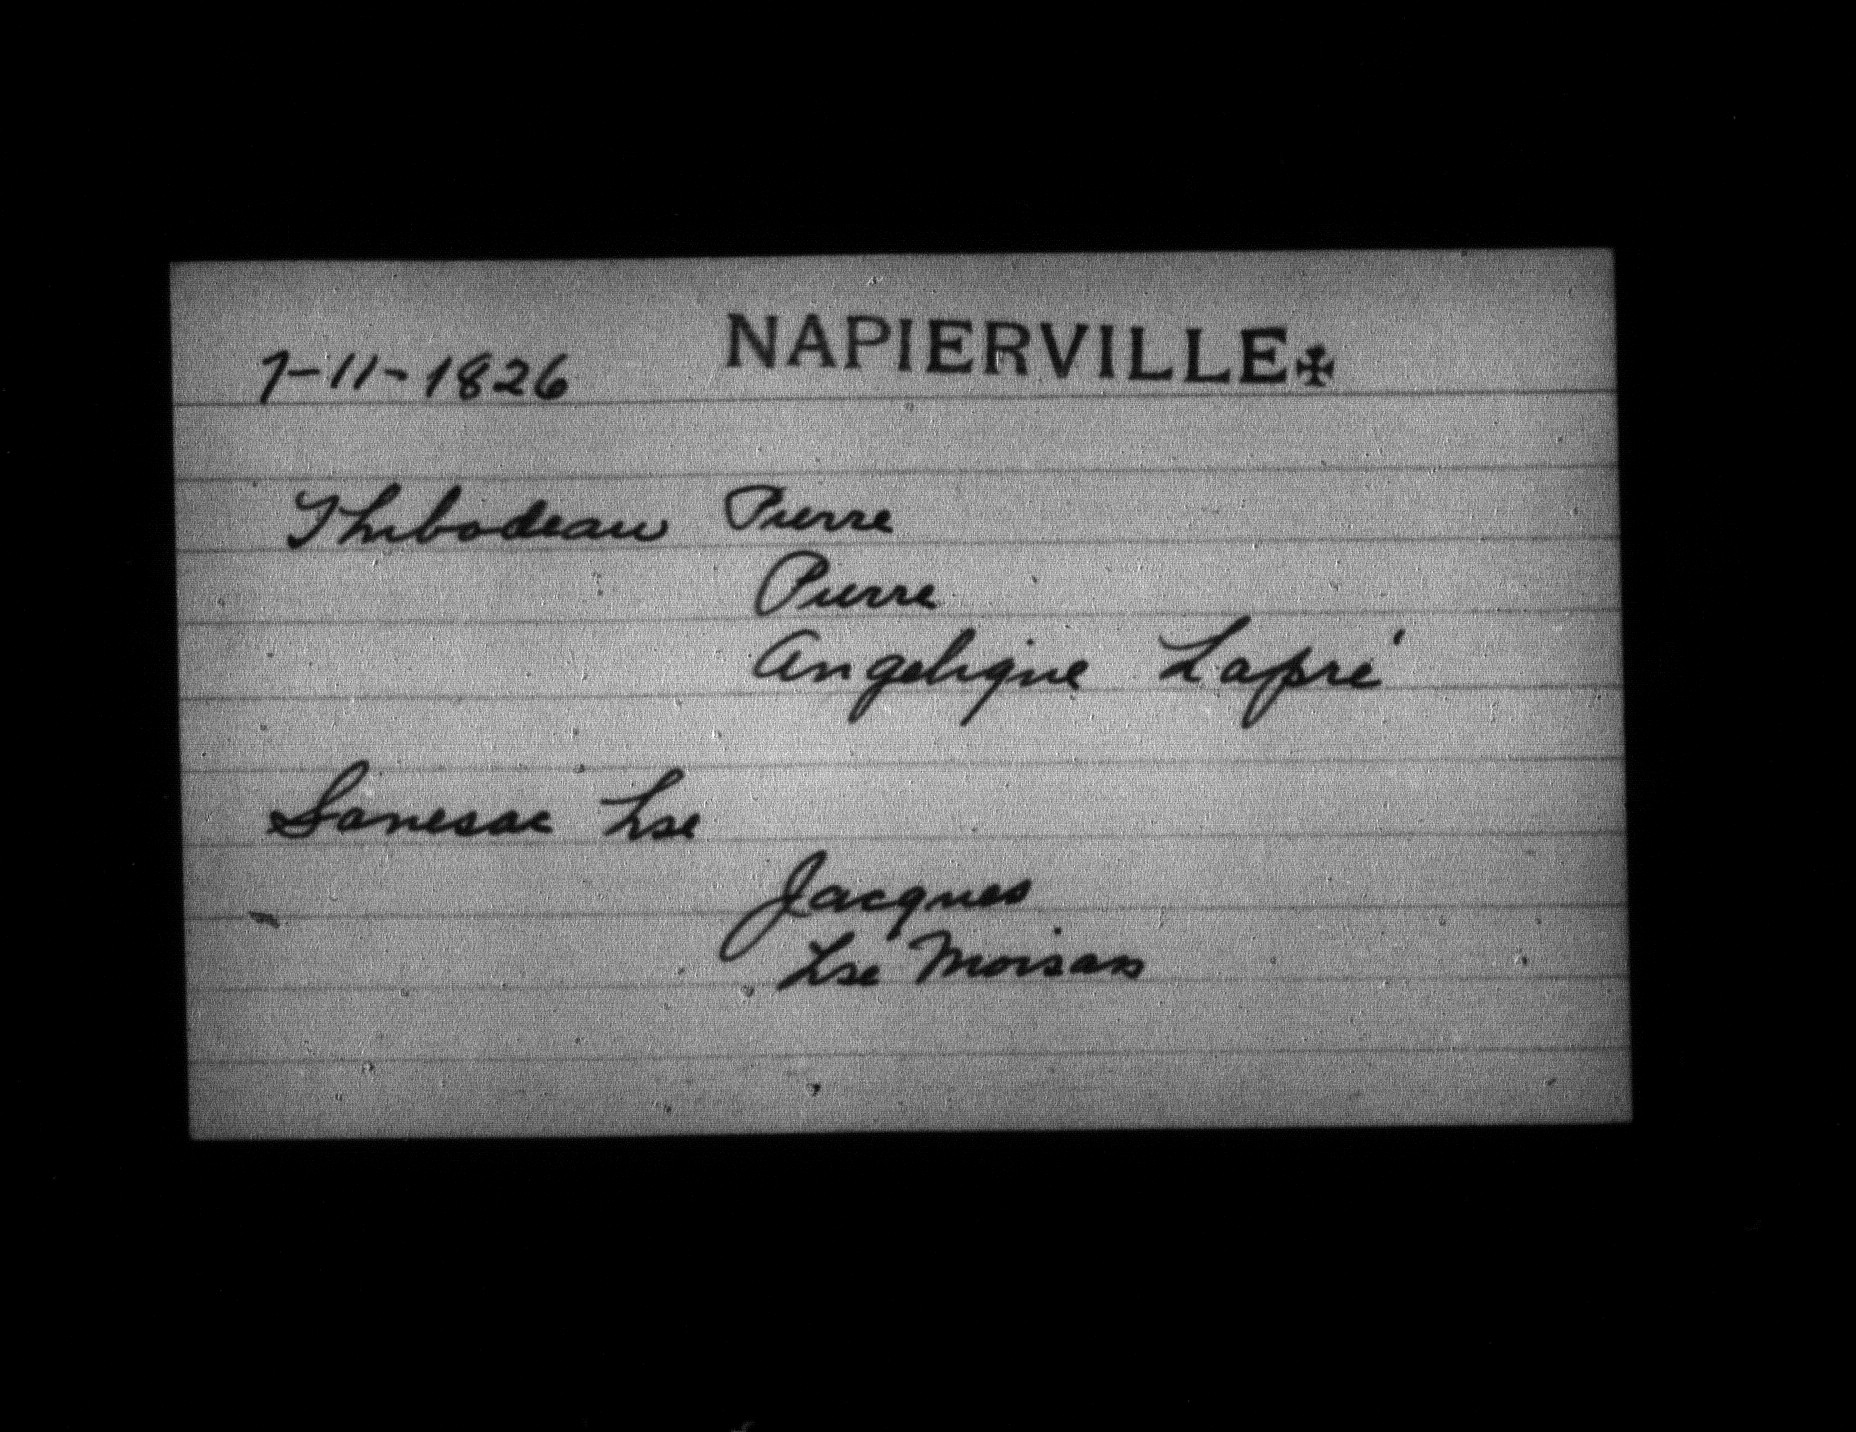 7-11-1826 NAPIERVILLE✠
Thibodeau Pierre
Pierre
Angelique Lapré
Sanesac Lse
Jacques
Lse Moisan